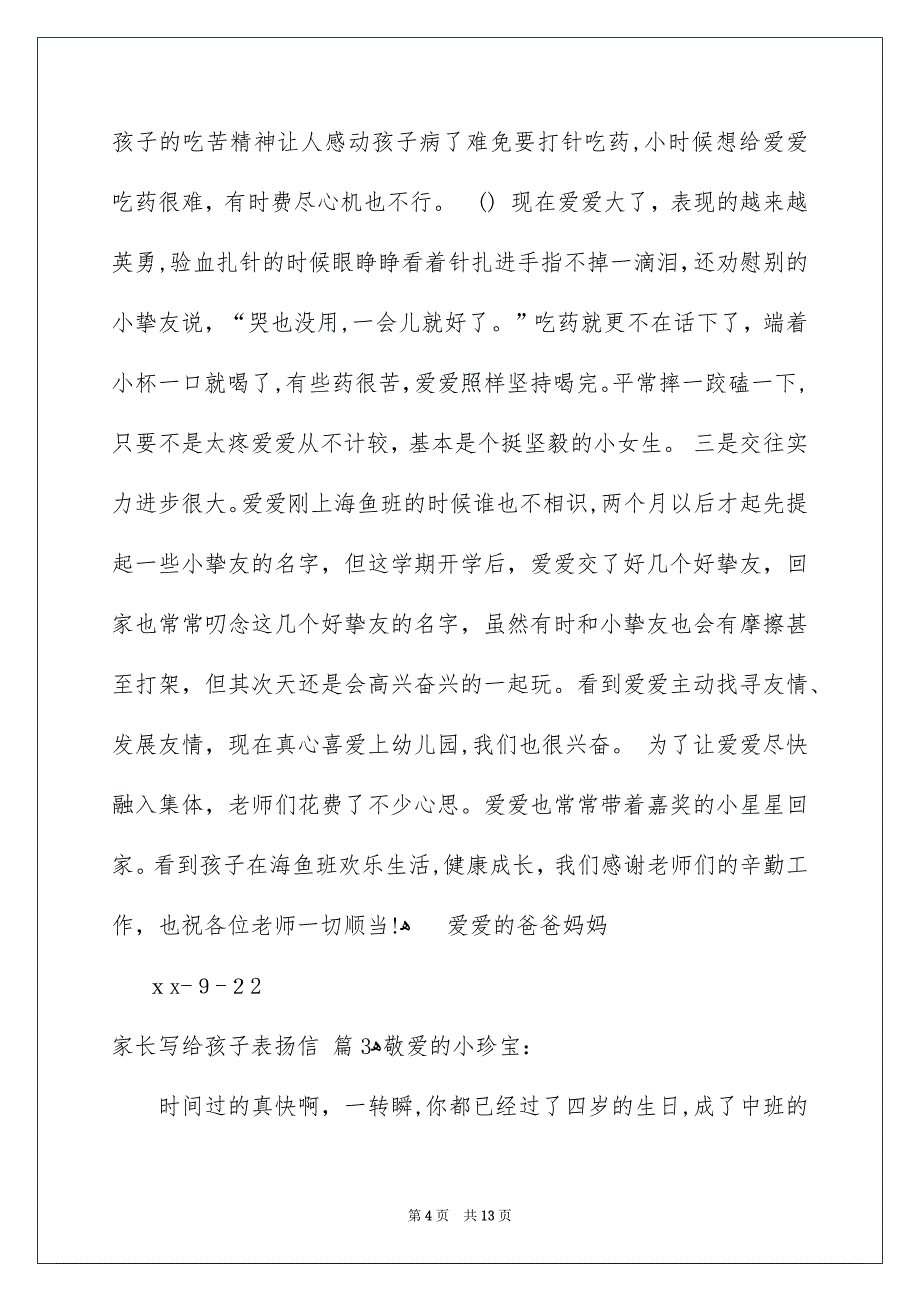 孩子的吃苦精神让人感动孩子病了难免要打针吃药,小时候想给爱爱
吃药很难，有时费尽心机也不行。 () 现在爱爱大了，表现的越来越
英勇,验血扎针的时候眼睁睁看着针扎进手指不掉一滴泪，还劝慰别的
小挚友说，“哭也没用,一会儿就好了。”吃药就更不在话下了，端着
小杯一口就喝了,有些药很苦,爱爱照样坚持喝完。平常摔一跤磕一下,
只要不是太疼爱爱从不计较，基本是个挺坚毅的小女生。 三是交往实
力进步很大。爱爱刚上海鱼班的时候谁也不相识,两个月以后才起先提
起一些小挚友的名字，但这学期开学后，爱爱交了好几个好挚友，回
家也常常叨念这几个好挚友的名字，虽然有时和小挚友也会有摩擦甚
至打架，但其次天还是会高兴奋兴的一起玩。看到爱爱主动找寻友情、
发展友情，现在真心喜爱上幼儿园,我们也很兴奋。 为了让爱爱尽快
融入集体，老师们花费了不少心思。爱爱也常常带着嘉奖的小星星回
家。看到孩子在海鱼班欢乐生活,健康成长，我们感谢老师们的辛勤工
作，也祝各位老师一切顺当!ﻫ 爱爱的爸爸妈妈
xx-9-22
家长写给孩子表扬信 篇3ﻫ敬爱的小珍宝：
时间过的真快啊，一转瞬,你都已经过了四岁的生日,成了中班的
第 4 页 共 13 页